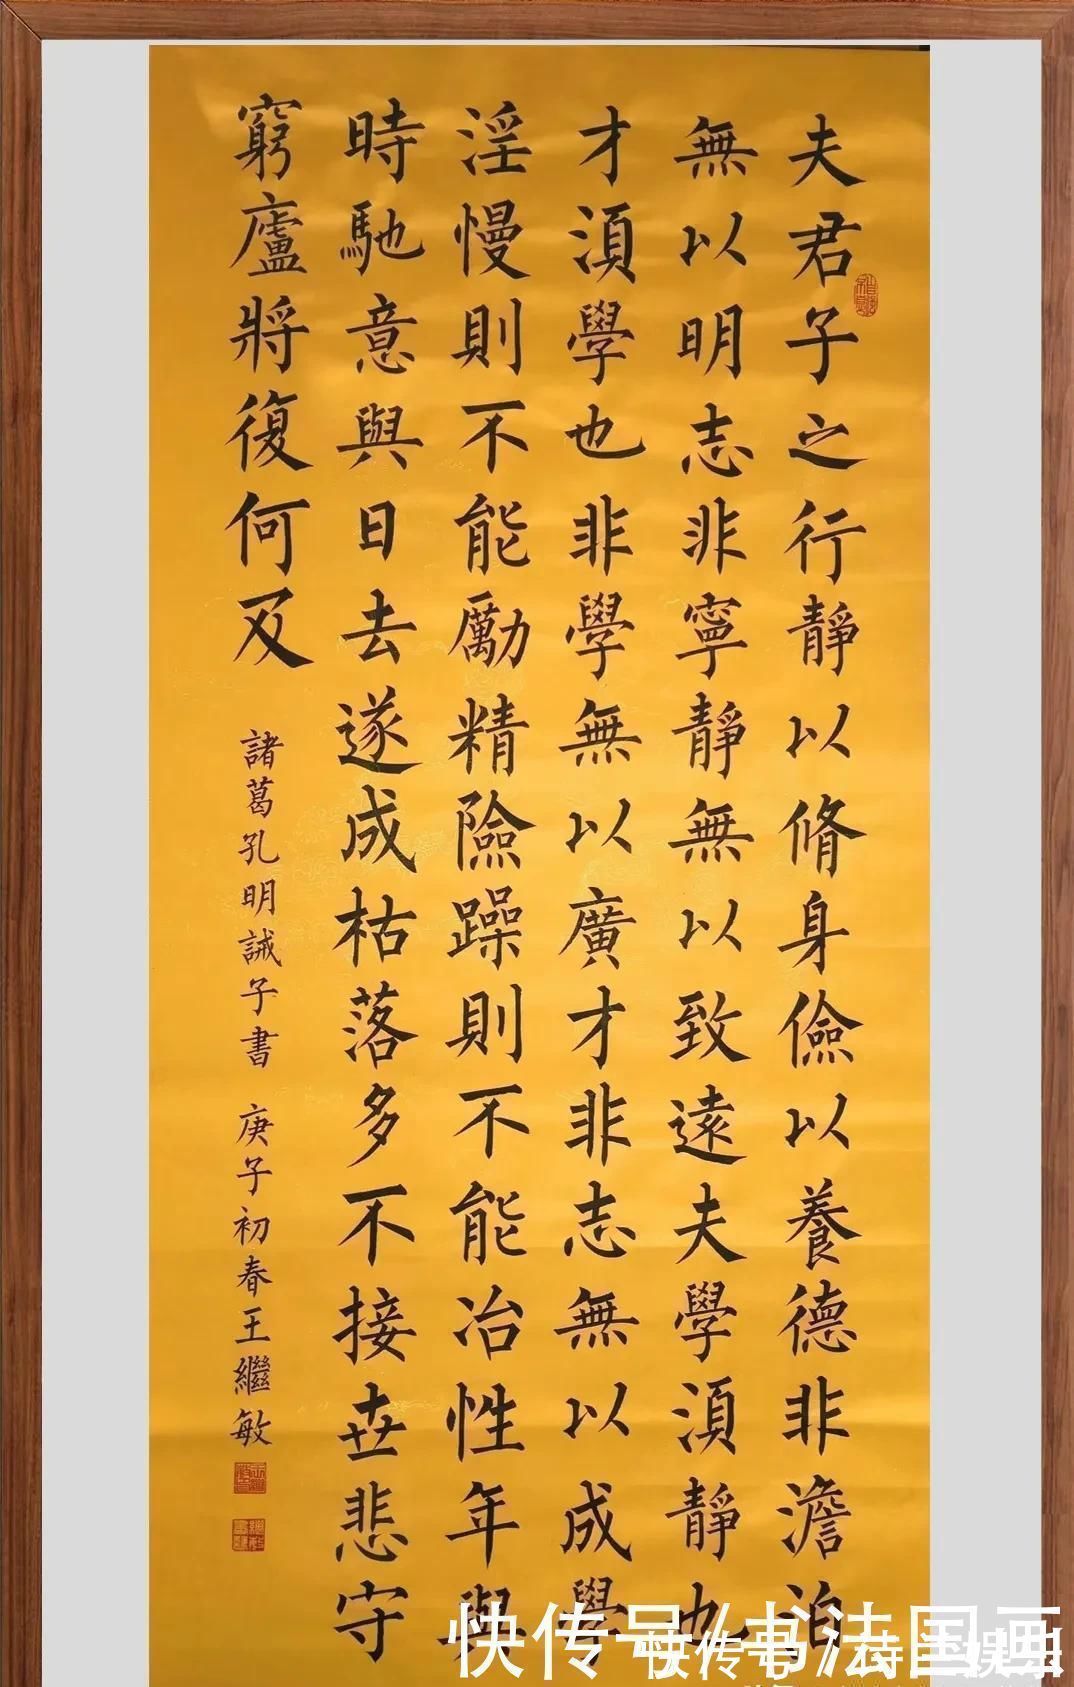 夫君子之行靜以脩身儉以養德非澹泊
無以明志非寧靜無以致遠夫學湏靜也
才湏學也非學無以廣才非志無以成學
淫慢則不能勵精險躁則不能冶性年與
時馳意與日去遂成枯落多不接世悲守
窮廬將復何及
諸葛孔明誡子書 庚子初春王繼敏
快传号/书法国画
快传号/